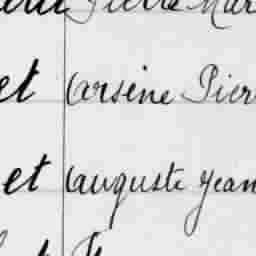 Pierre Mar
et (arsène Pier
et (auguste Jean